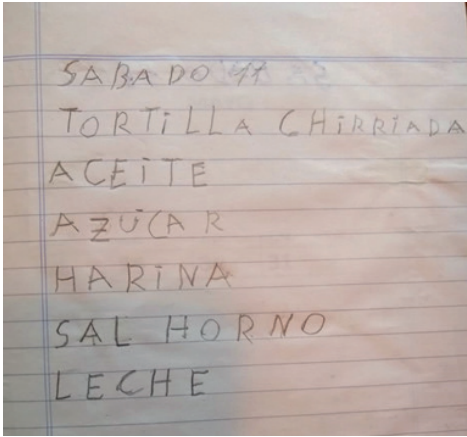 SABADO 11
TORTiLLA CHiRRiADA
ACEiTE
AZUCAR
HARiNA
SAL HORNO
LECHE